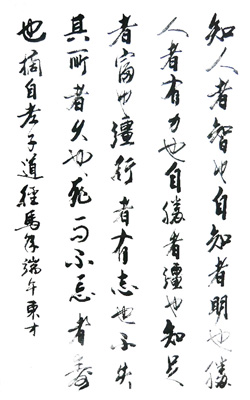 知人者智也自知者明也勝
人者有力也自勝者彊也知足
者富也彊行者有志也不失
其所者久也死而不忘者壽
也摘自老子道經馬年端午東才